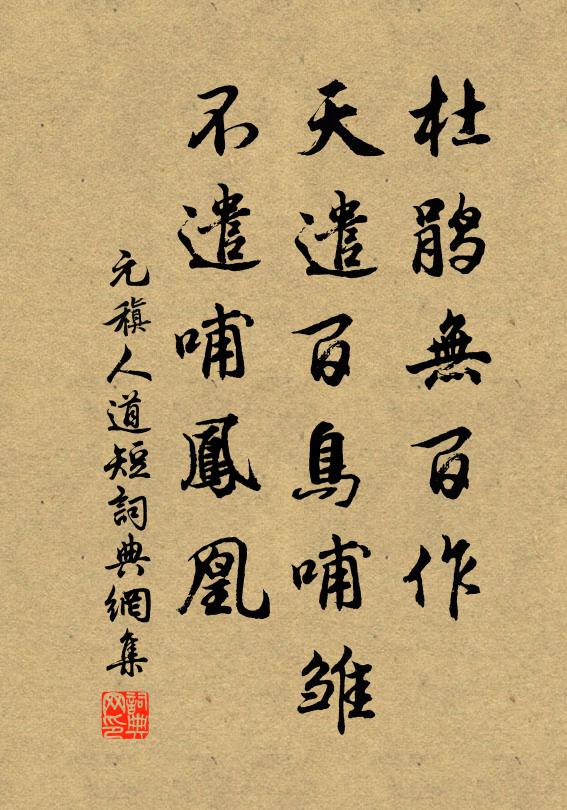 杜鹃無百作
天遣百鳥哺雛
不遣哺鳳凰
元稹人道短詞典網集
詞典网印